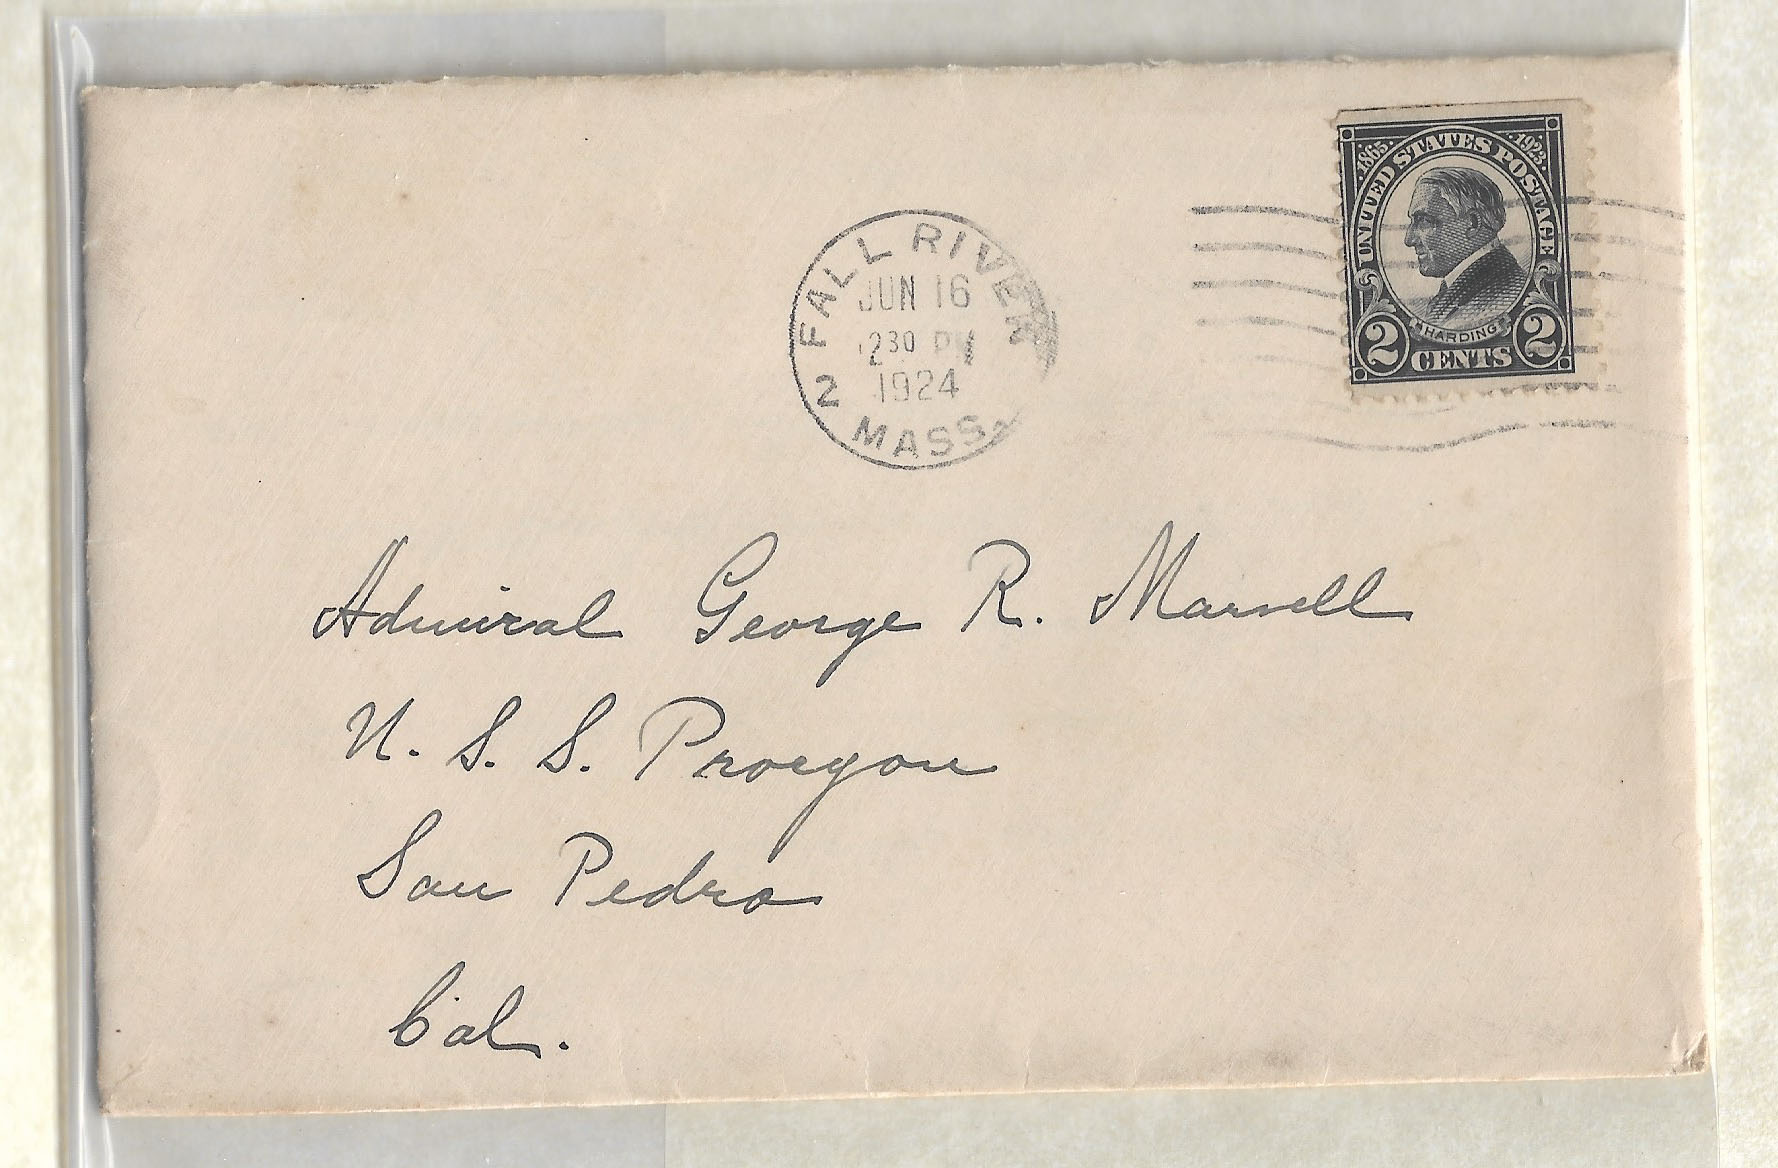 ·1865· UNITED STATES POSTAGE ·1923·
HARDING
2 CENTS 2
FALL RIVER
JUN 16
230 PM
1924
2 MASS.
Admiral George R. Marvell
U. S. S. Procyon
San Pedro
Cal.